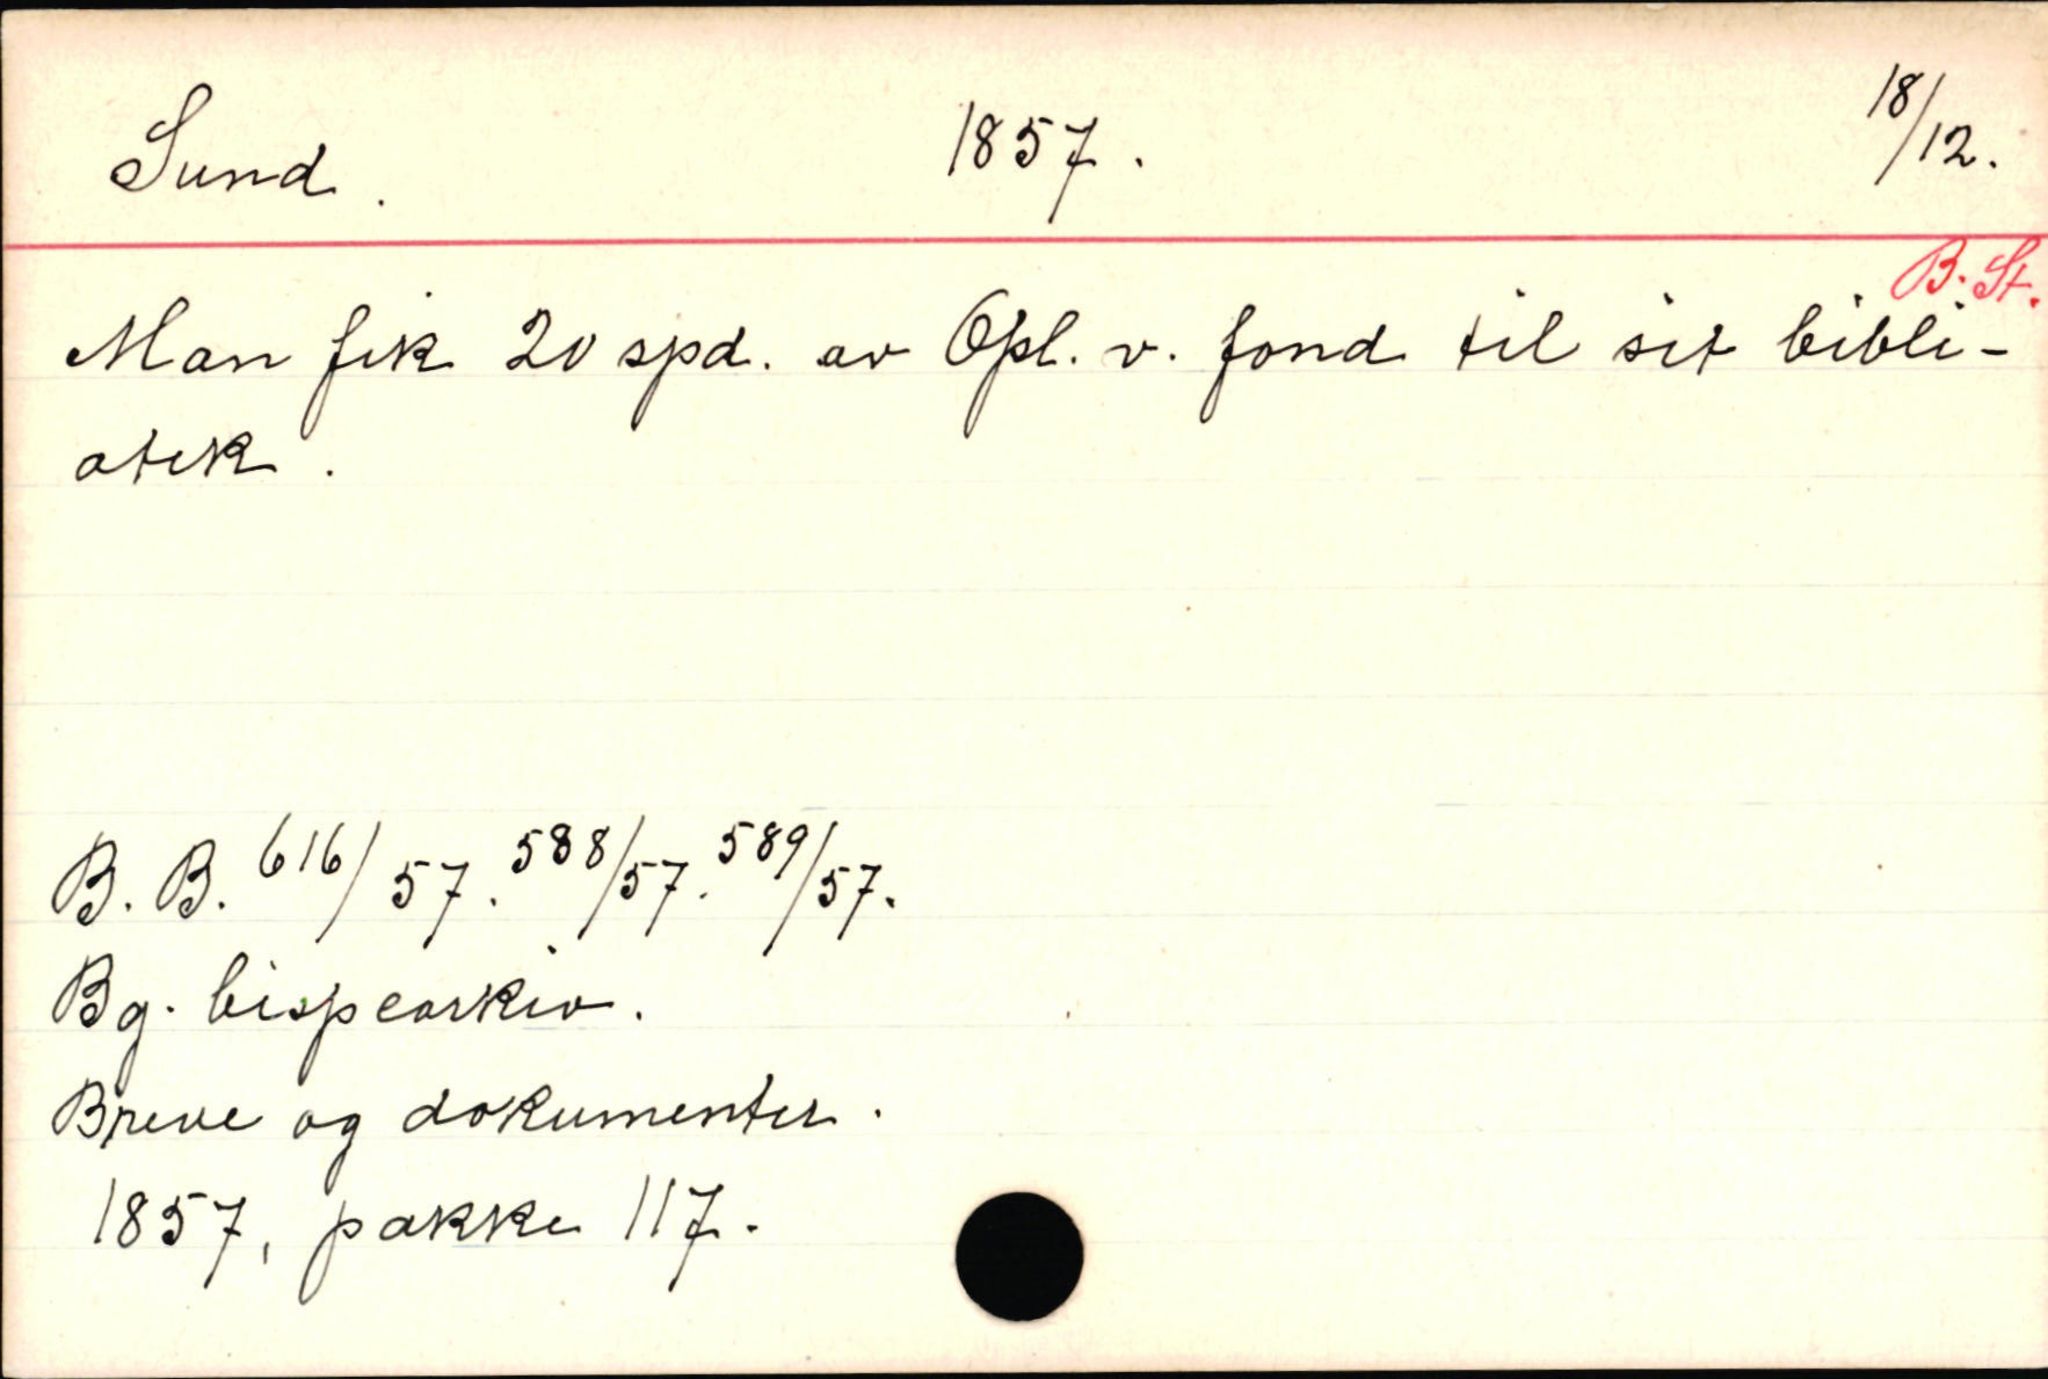 Sund. 1857. 18/12.
B. St.
Man fik 20 spd. av Opl. v. fond til sit bibli-
otek.
B. B. 616/57. 588/57. 589/57.
Bg. bispearkiv.
Breve og dokumenter.
1857, pakke 117.